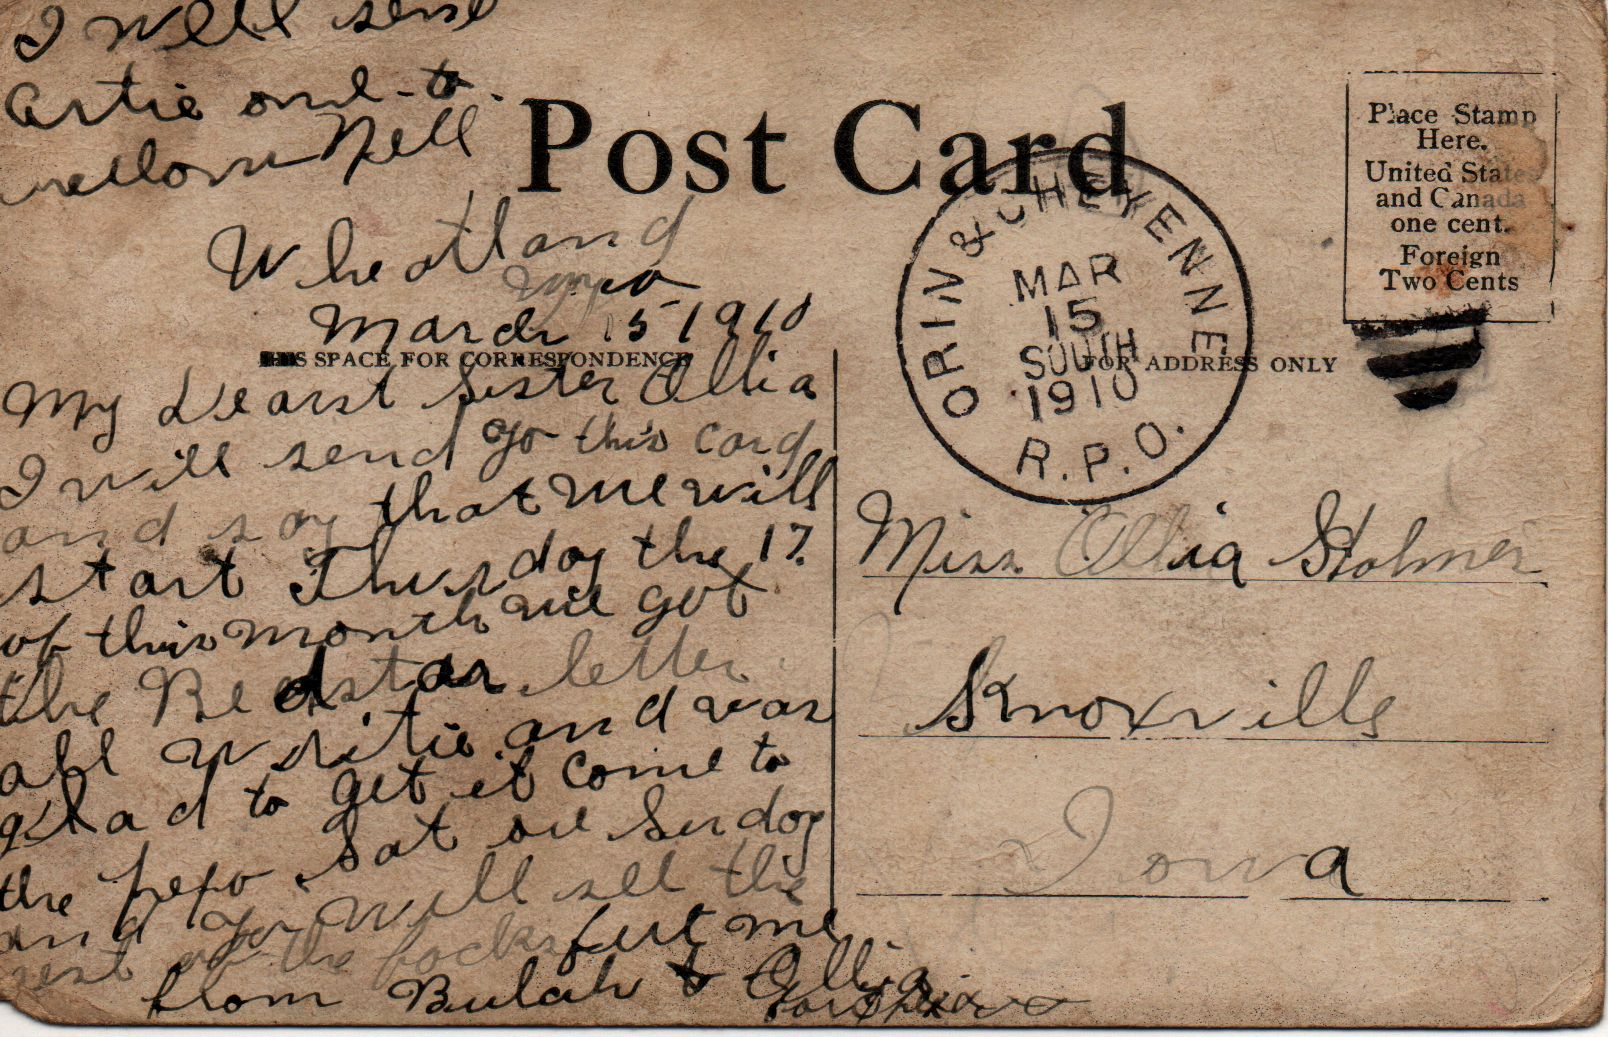 I will send
Artie one to
Nell
Post Card
Place Stamp
Here.
United States
and Canada
one cent.
Foreign
Two Cents
ORIN & CHEYENNE
MAR
15
SOUTH
1910
R.P.O.
Wheatland
Wyo
March 15 1910
THIS SPACE FOR CORRESPONDENCE
FOR ADDRESS ONLY
My Dearst Sister Ollia
I will send yo this card
and say that we will
start Thursday the 17.
of this month we got
the letter
all and was
glad to get it come to
the Sat Sunday
and yo will
rest of the me
from Bulah to Ollia
Miss Ollia Holmes
Knoxville
Iowa